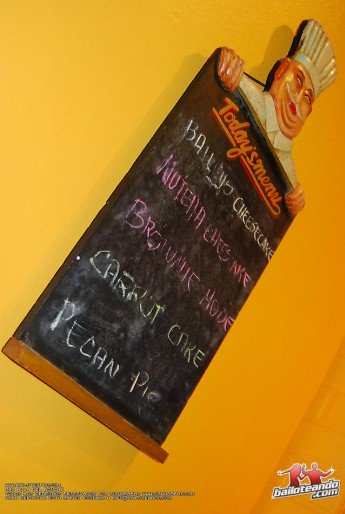 Today's menu
BAILYS CHEESECAKE
NUTELLA CHEESECAKE
BROWNIE MODE
CARROT CAKE
PECAN PIE
bailoteando
.com